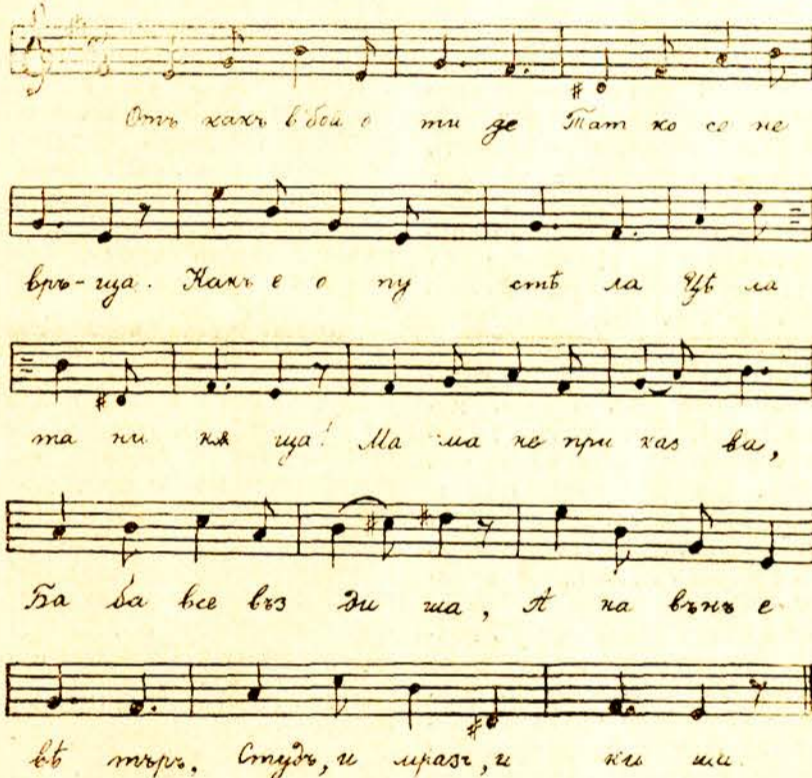 Отъ какъ в бой о ти де Тат ко се не
връ-ща. Какъ е о пу стѣ ла Цѣ ла
та ни кѫ ща! Ма ма не при каз ва,
Ба ба все въз ди ша, А на вънъ е
вѣ търъ, Студъ, и мразъ, и ки ши.